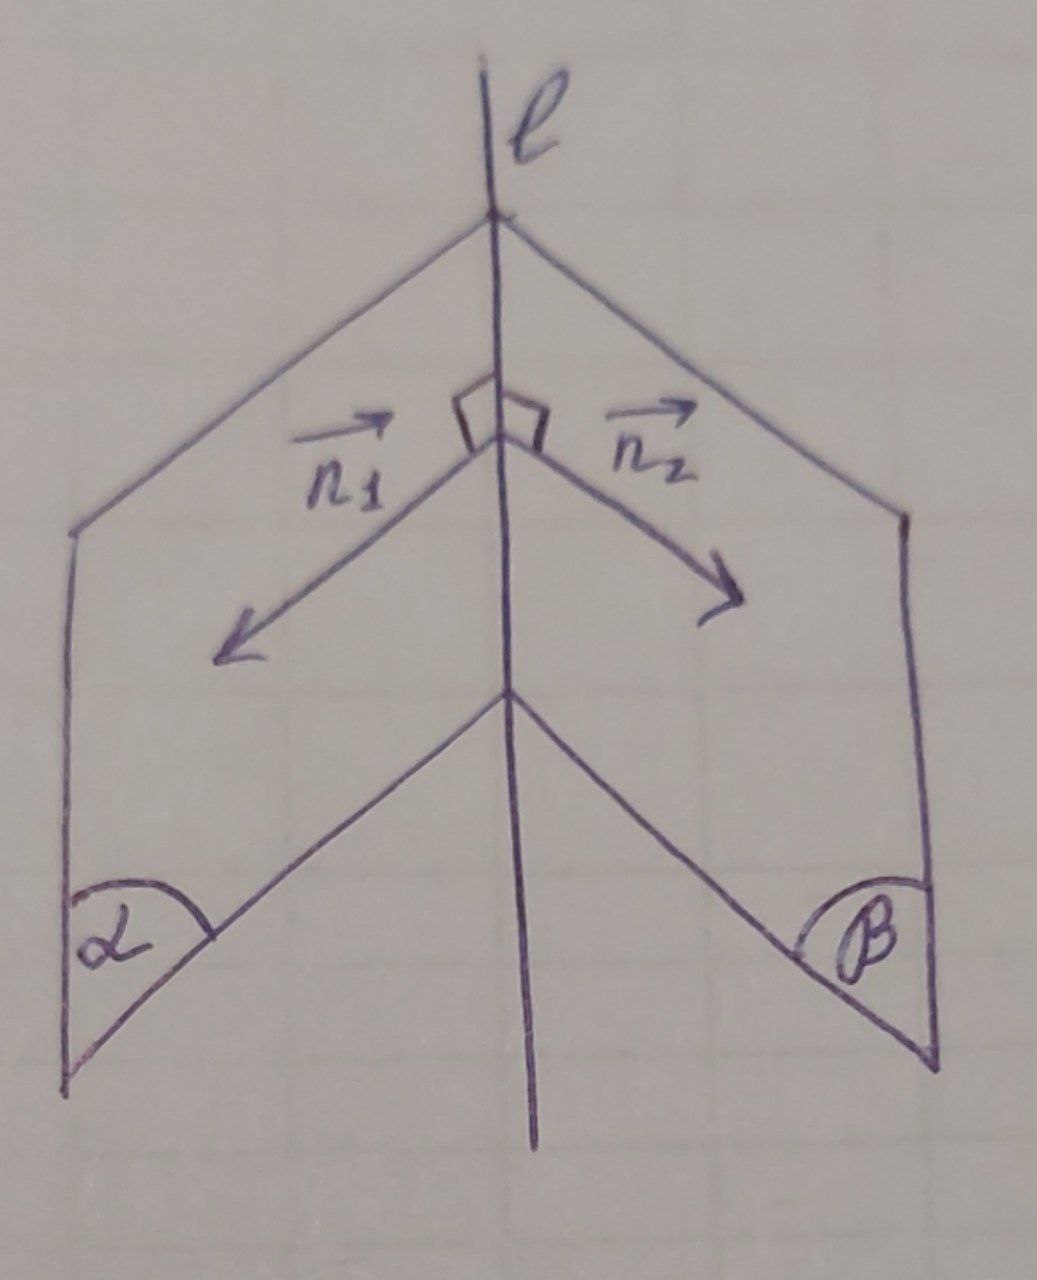 ℓ
n₁ n₂
α β